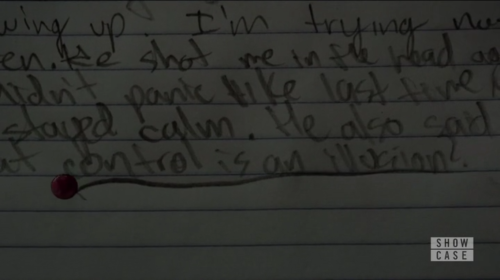 wing up. I'm trying
en. He shot me in the head
didn't panic like last time
stayed calm. He also said
at control is an illusion?.
SHOW
CASE